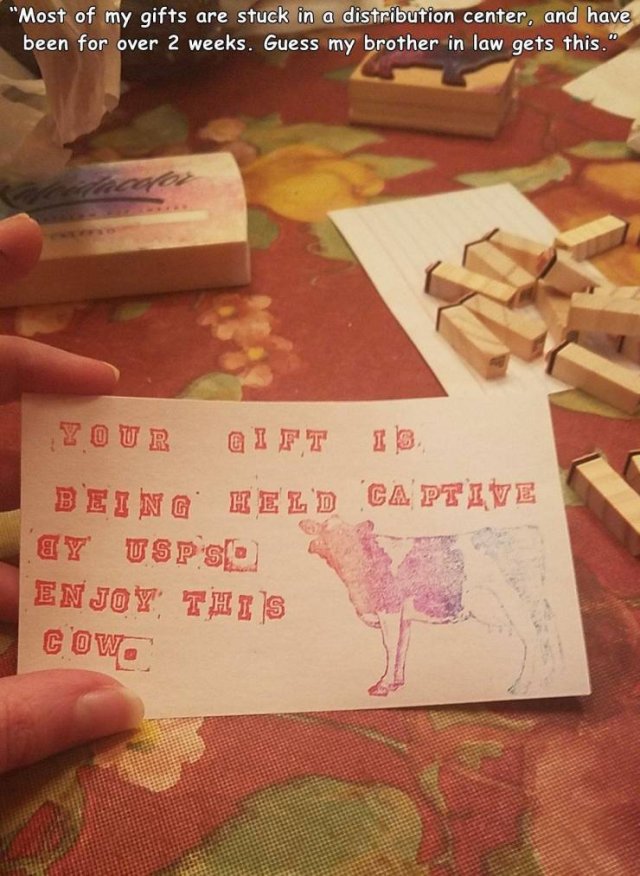 "Most of my gifts are stuck in a distribution center, and have
been for over 2 weeks. Guess my brother in law gets this."
YOUR GIFT IS
BEING HELD CAPTIVE
BY USPS.
ENJOY THIS
COW.